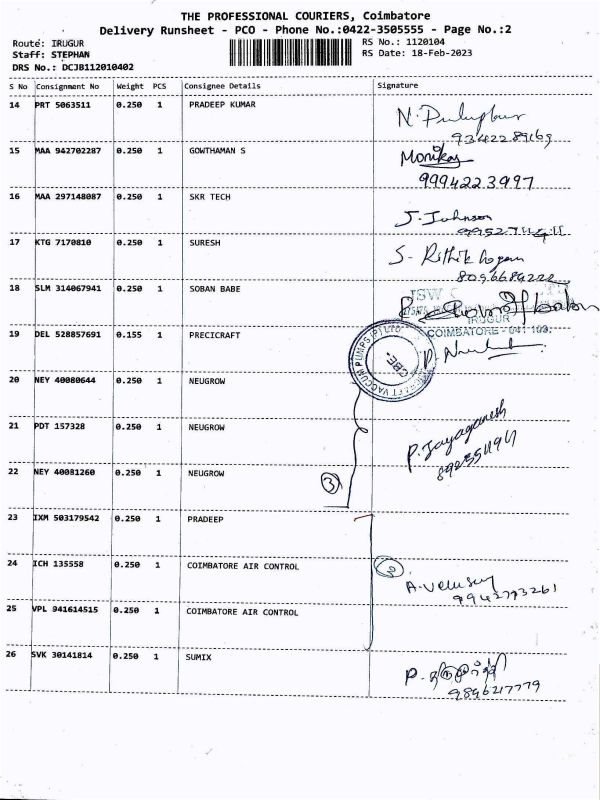 THE PROFESSIONAL COURIERS, Coimbatore
Delivery Runsheet - PCO - Phone No.:0422-3505555 - Page No.:2
Route: IRUGUR
Staff: STEPHAN
DRS No.: DCJB112010402
RS No.: 1120104
RS Date: 18-Feb-2023
S No Consignment No Weight PCS Consignee Details Signature
14 PRT 5063511 0.250 1 PRADEEP KUMAR
9342289169
15 MAA 942702287 0.250 1 GOWTHAMAN S
9994223997
16 MAA 297148087 0.250 1 SKR TECH
J. Johnson
17 KTG 7170810 0.250 1 SURESH
S-
8056689222
18 SLM 314067941 0.250 1 SOBAN BABE
JSW
IRUGUR
COIMBATORE - 641 103.
19 DEL 528857691 0.155 1 PRECICRAFT
CRAFT VACCUM PUMPS (P) LTD
CBE.
20 NEY 40080644 0.250 1 NEUGROW
21 PDT 157328 0.250 1 NEUGROW
P. Jayaganesh
22 NEY 40081260 0.250 1 NEUGROW
3
23 IXM 503179542 0.250 1 PRADEEP
24 ICH 135558 0.250 1 COIMBATORE AIR CONTROL
A. Velusamy
9942793261
25 VPL 941614515 0.250 1 COIMBATORE AIR CONTROL
26 SVK 30141814 0.250 1 SUMIX
P.
9896217779